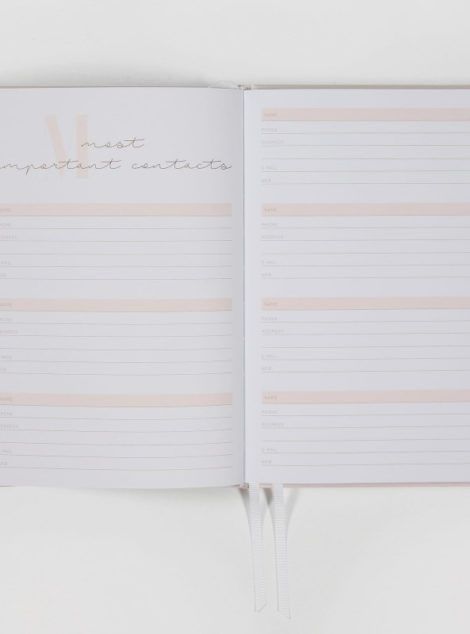 M
most
important contacts
NAME
PHONE
ADDRESS
E-MAIL
WEB
NAME
PHONE
ADDRESS
E-MAIL
WEB
NAME
PHONE
ADDRESS
E-MAIL
WEB
NAME
PHONE
ADDRESS
E-MAIL
WEB
NAME
PHONE
ADDRESS
E-MAIL
WEB
NAME
PHONE
ADDRESS
E-MAIL
WEB
NAME
PHONE
ADDRESS
E-MAIL
WEB